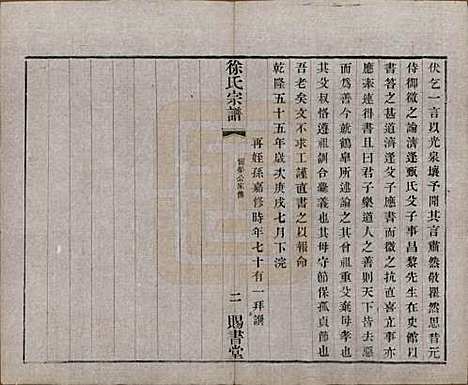 伏乞一言以光泉壤予開其言肅然敬瞿然思昔元
侍御微之論濟逢甄氏父子事昌黎先生在史館以
書答之甚道濟逢父子應書而微之抗直喜立事亦
應深得書且曰君子樂道人之善則天下皆去惡
而為善今就鶴皐所述論之其曾祖重父棄母孝也
其父叔恪遵祖訓合彝義也其母守節保孤貞節也
吾老矣文不求工謹直書之以報命
乾隆五十五年歲次庚戌七月下浣
再姪孫嘉修時年七十有一拜譔
徐氏宗譜
公家傳
二
賜書堂